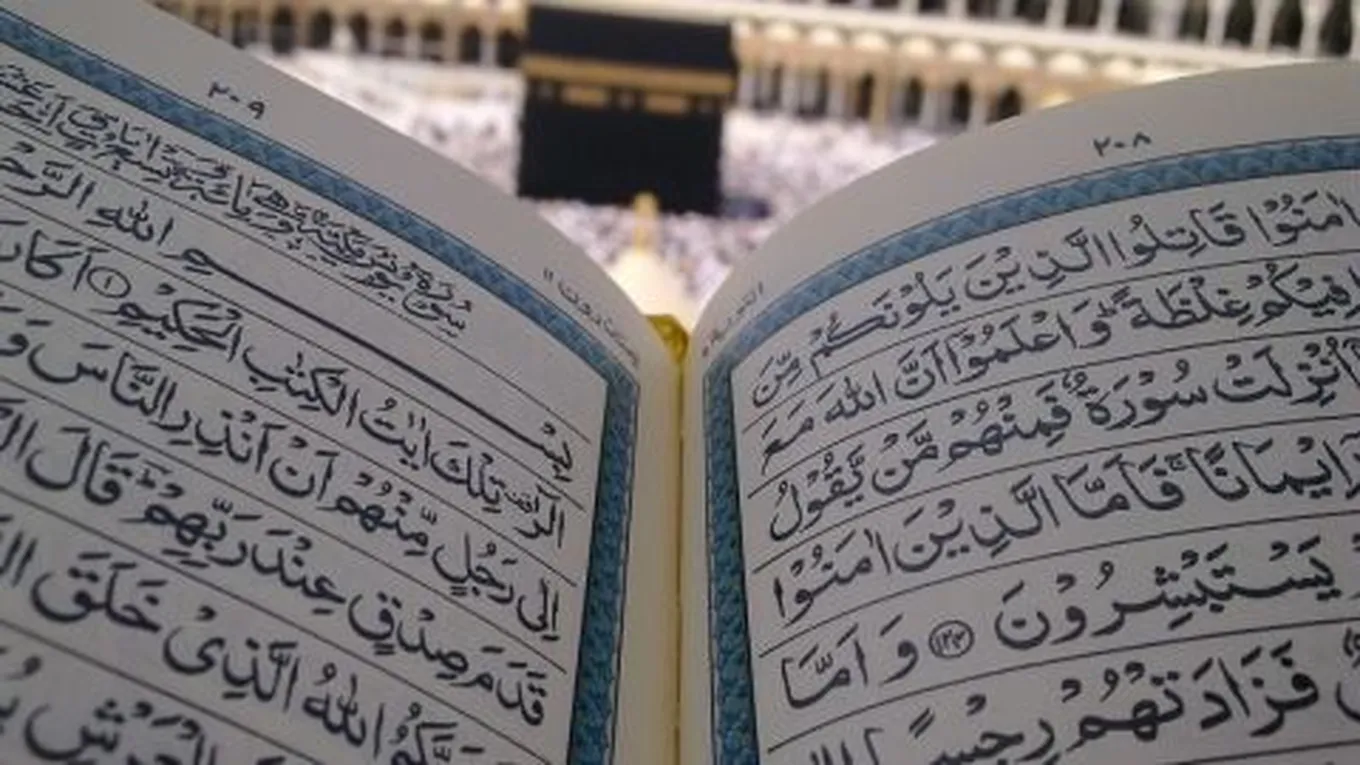 ٢٠٨
التوبة ٩
اٰمَنُوْا قَاتِلُوا الَّذِيْنَ يَلُوْنَكُمْ مِّنَ
فِيْكُمْ غِلْظَةً ؕ وَاعْلَمُوْۤا اَنَّ اللّٰهَ مَعَ
اُنْزِلَتْ سُوْرَةٌ فَمِنْهُمْ مَّنْ يَّقُوْلُ
اِيْمَانًا ۚ فَاَمَّا الَّذِيْنَ اٰمَنُوْا
يَسْتَبْشِرُوْنَ ١٢٤ وَ اَمَّا
فَزَادَتْهُمْ رِجْسًا
٢٠٩
يعتذرون ١١
بِسْمِ اللّٰهِ الرَّحْ
الٓرٰ تِلْكَ اٰيٰتُ الْكِتٰبِ الْحَكِيْمِ ١ اَكَانَ
اِلٰى رَجُلٍ مِّنْهُمْ اَنْ اَنْذِرِ النَّاسَ وَ
قَدَمَ صِدْقٍ عِنْدَ رَبِّهِمْ ؕ قَالَ
رَبَّكُمُ اللّٰهُ الَّذِيْ خَلَقَ
الْعَرْشِ